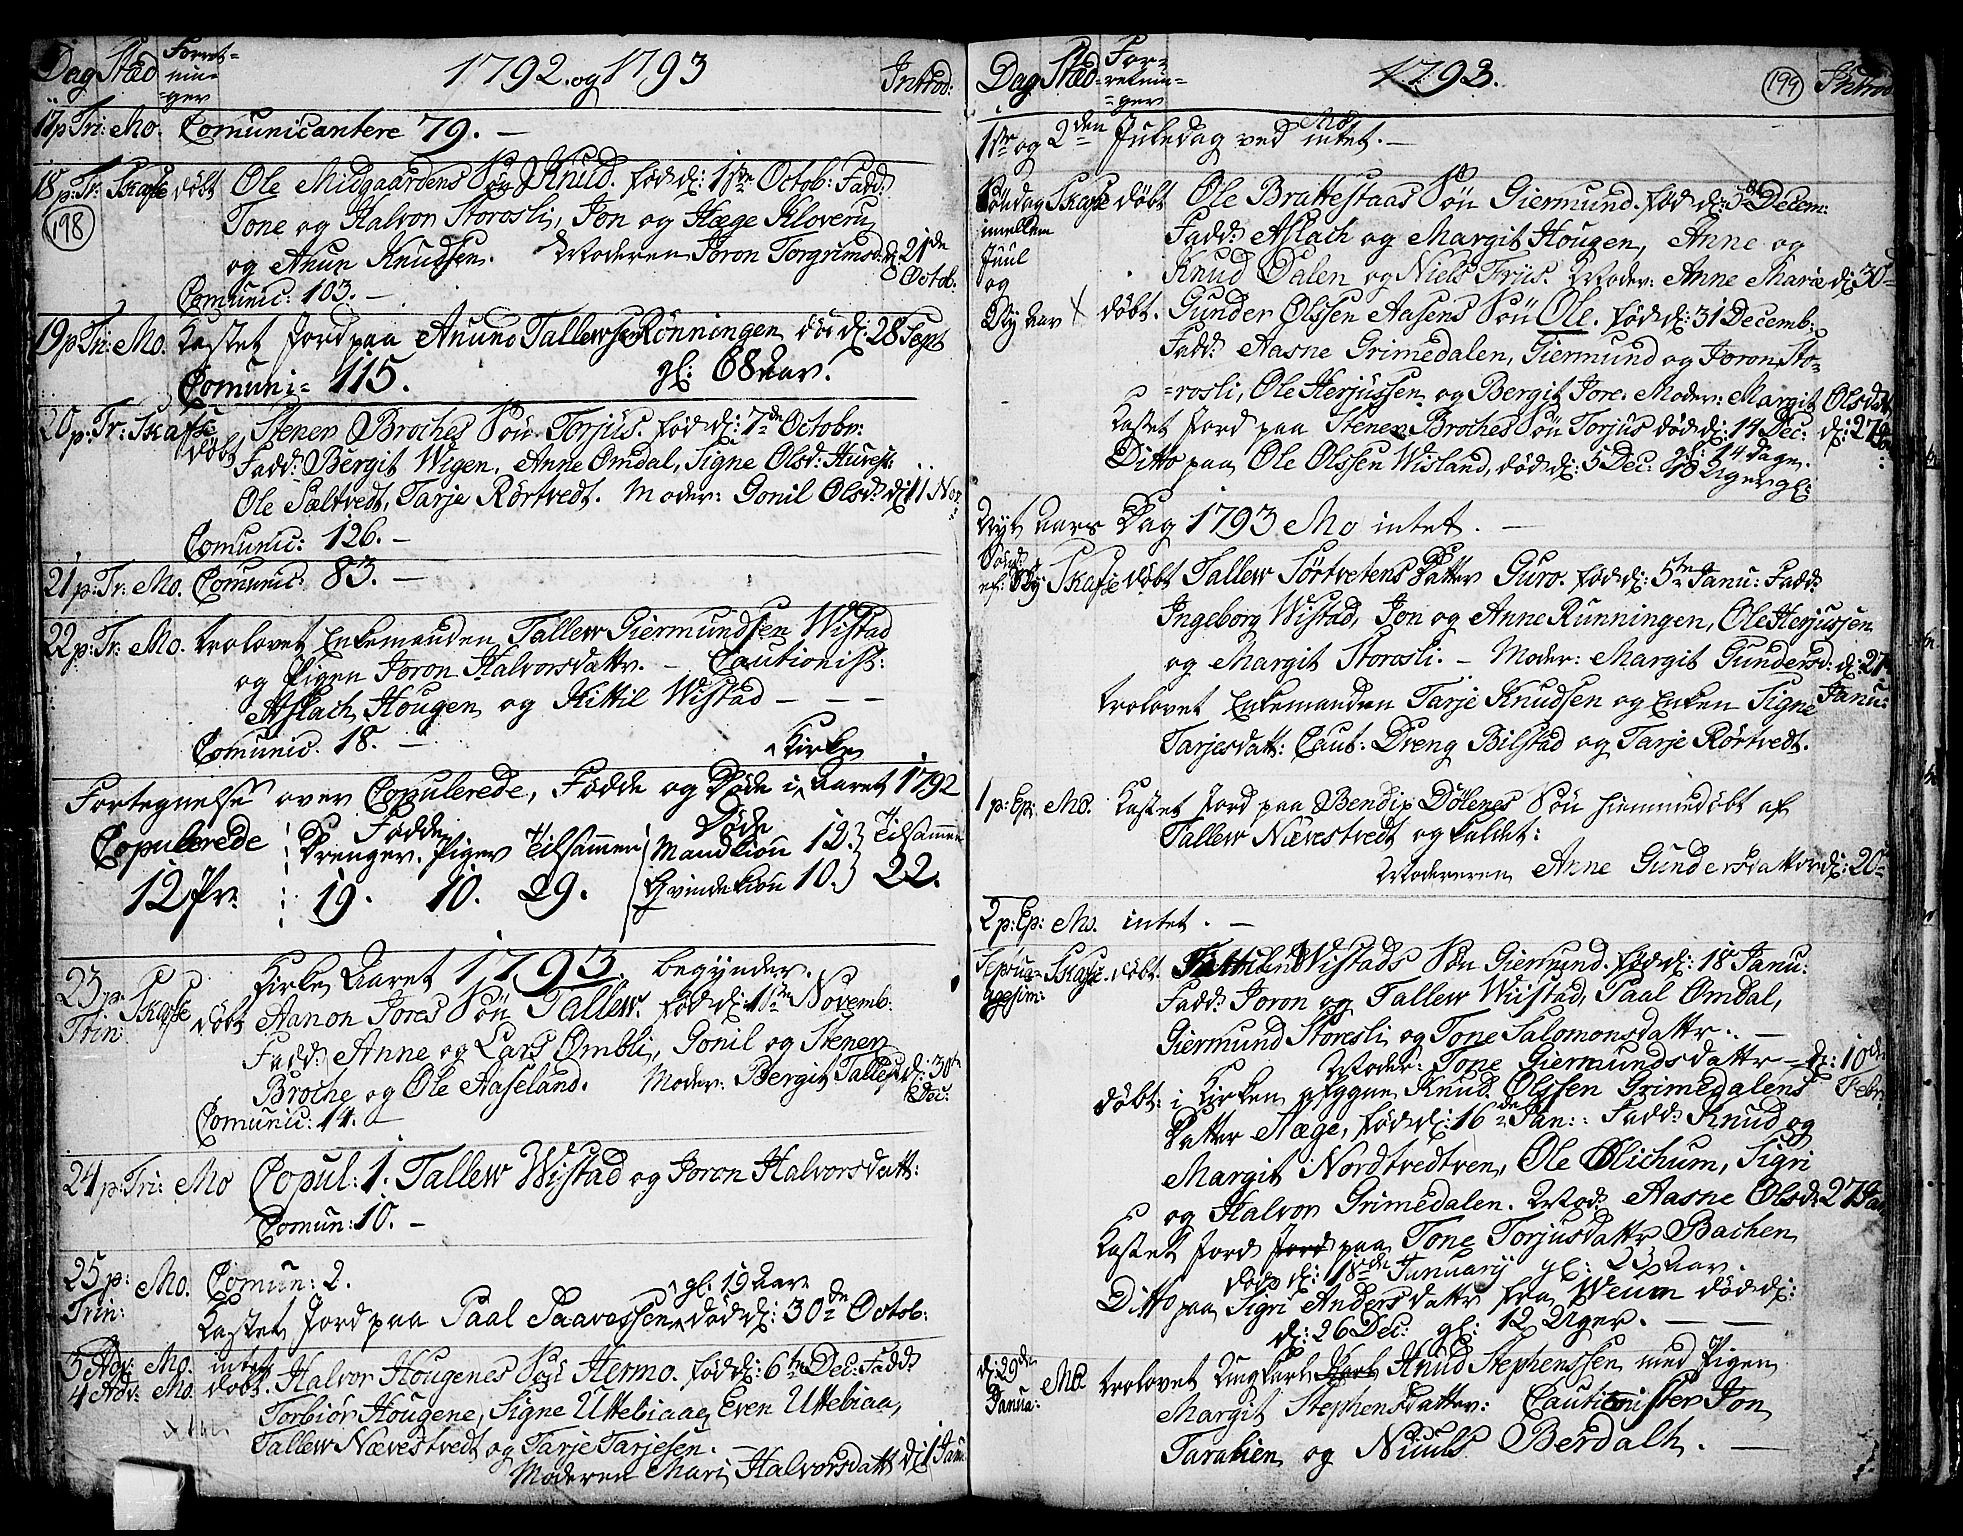 Dag Stæd Forret-
nin-
ger
1792 og 1793
Introd:
17 p: Tri: Mo. Comunicantere 79. –
18 p: Tr: Skafse døbt Ole Midgaardens Søn Knud. fød d: 1ste Octob: Fadd:
198
Tone og Halvor Storosli, Jon og Hæge Kloveru
og Anun Knudsen. Moderen Joron Torgrimsd: d: 21de
Octob:
Comunic: 103. –
19 p: Tri: Mo. Kastet Jord paa Anund Tallewsen Rönningen død d: 28 Sept
gl: 68 aar.
Comuni= 115.
20 p: Tr: Skafse døbt Stener Broches Søn Torjus. fød d: 7de Octobr:
Fadd: Bergit Wigen, Anne Omdal, Signe Olsd: Huvest:
Ole Saltvedt, Tarje Rörtvedt. Moder: Gonil Olsd: d: 11 Nov
Comunic: 126. –
21 p: Tr: Mo. Comunic: 83. –
22 p: Tr: Mo. trolovet Enkemanden Tallew Giermundsen Wistad
og Pigen Joron Halvorsdattr. – Cautionist:
Aslach Hougen og Kittil Wistad – – –
Comunic. 18. –
Fortegnelse over Copulerede, Fødde og Døde i Kirke Aaret 1792
Copulerede Fødde Døde
Drenger. Piger Tilsammen Mandkiøn 12. Tilsammen
12 Pr. 19. 10. 29. Qvindekiön 10. 22.
Kirke Aaret 1793. begynder.
23 p: Trin: Skafse døbt Aanon Jores Søn Tallew. fød d: 1ste Novemb:
Fadd: Anne og Lars Ombli, Gonil og Stener
Broche og Ole Aaseland. Moder: Bergit Tallefsd: d: 30te
Dec:
Comunic: 14. –
24 p: Tri: Mo Copul: 1. Tallew Wistad og Joron Halvorsdatt:
Comun: 10. –
25 p: Trin: Mo. Comun: 2.
gl: 19 Aar
Kastet Jord paa Paal Saavessen død d: 30de Octob:
3 Adv: Mo. intet
4 Adv: Mo. døbt. Halvor Hougenes Søn Hermo. fød d: 6te Dec: Fadd:
Torbiör Hougene, Signe Uttebiaae, Even Uttebiaa,
Tallew Nævestvedt og Tarje Tarjesen. –
Moderen Mari Halvorsdatt d: 1 Janu:
Dag Stæd For-
retnin-
ger
1793.
199
Introd
1ste og 2den Juledag ved Mo intet. –
Söndag Skafse døbt Ole Brattestaas Søn Giermund. fød d: Decem:
imellem Fadd: Aslach og Margit Hougen, Anne og
Juul Knud Dalen og Niels Friis. Moder: Anne Marie d: 30
og
Ny Aar døbt. Gunder Olssen Aasens Søn Ole. fød d: 31 Decemb:
Fadd: Aasne Grimedalen, Giermund og Joron Sto-
rosli, Ole Herjussen og Bergit Jore. Moder: Margit Olsdatt
Kastet Jord paa Stener Broches Søn Torjus død d: 14 Dec: d: 27
gl: 14 dage.
Ditto paa Ole Olssen Wisland, død d: 5 Dec: 18 Uger gl:
Nyt Aars Dag 1793 Mo intet. –
Sönd: ef: Ny Skafse døbt Tallew Sörtvetens Datter Guro. fød d: 5te Janu: Fadd:
Ingeborg Wistad, Jon og Anne Runningen, Ole Herjussen
og Margit Storosli. – Moder: Margit Gundersd: d: 27
Janu:
trolovet Enkemanden Tarje Knudsen og Enken Signe
Tarjesdatt: Caut: Dreng Bilstad og Tarje Rörtvedt.
1 p: Ep: Mo. Kastet Jord paa Bendix Dölenes Søn hiemmedøbt af
Tallew Nævestvedt og kaldet:
Moderen Anne Gundersdatter d: 20
2 p: Ep: Mo. intet. –
Septua- Skafse. døbt. Wistads Søn Giermund. fød d: 18 Janu:
gesim: Fadd: Joron og Tallew Wiistad, Paal Omdal,
Giermund Storosli og Tone Salomonsdattr. –
Moder: Tone Giermundsdattr – d: 10de
Febr:
døbt: i Kirken Knud Olssen Grimedalens
Datter Hæge, fød d: 16de Jan: Fadd: Knud og
Margit Nordtvedtven, Ole Olichum, Sigri
og Halvor Grimedalen. Mod: Aasne Olsd: 27 Jan
Kastet Jord Jord paa Tone Torjusdattr Bachen
død d: 18de January gl: 23 Aar.
Ditto paa Sigri Andersdattr fra Weum død d:
d: 26 Dec: gl: 12 Uger. – –
d: 29de Janua: Mo. trolovet Ungkarl Knud Stephenssen med Pigen
Margit Stephensdatter: Cautionister Jon
Taraldlien og Nuuls Berdalh. –